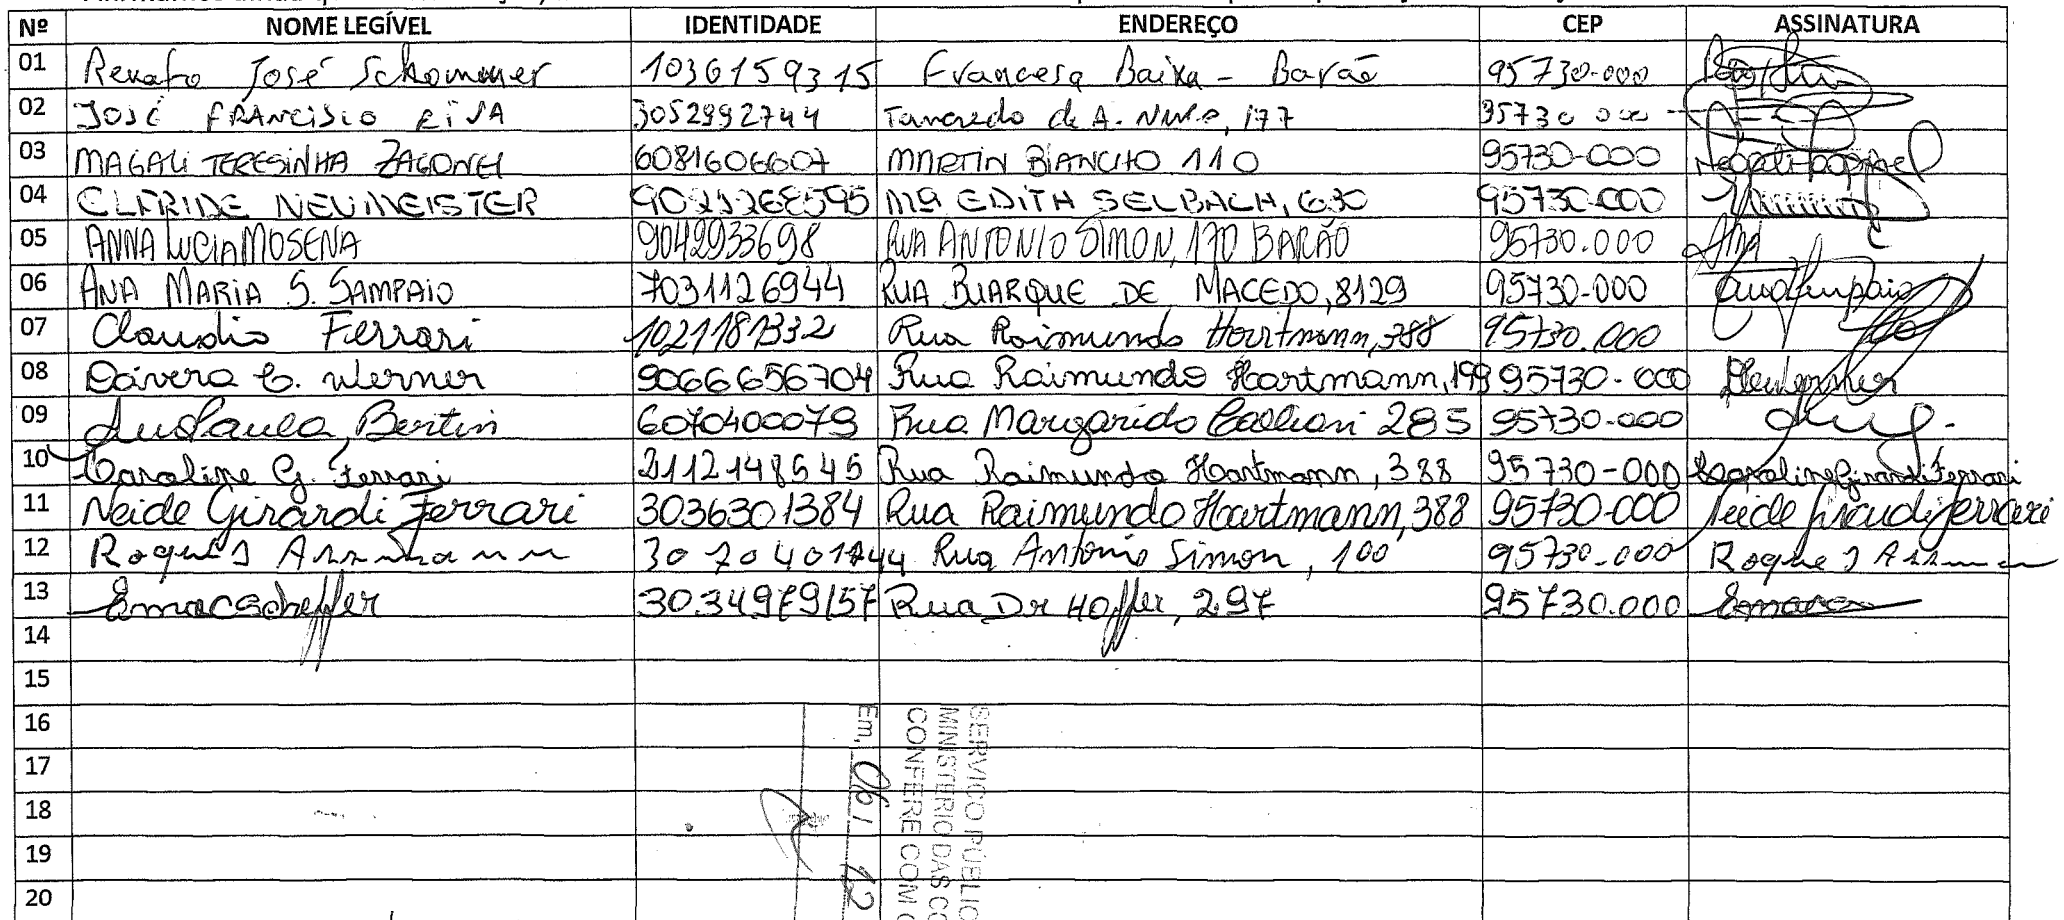 Nº NOME LEGÍVEL IDENTIDADE ENDEREÇO CEP ASSINATURA
01 Renato José Schommer 1036159315 Francesa Baixa - Barão 95730-000
02 JOSÉ FRANCISCO 3052992744 Tancredo de A. Neves, 177 95730 000
03 MAGALI TERESINHA ZAGONEL 6081606607 MARTIN BIANCHO 110 95730-000
04 CLERIDE NEUMEISTER Mª EDITH SELBACH, 630 95730-000
05 ANNA LUCIA MOSENA 9042933698 RUA ANTONIO SIMON, 170 BARÃO 95730.000 Ana
06 ANA MARIA S. SAMPAIO 7031126944 RUA BUARQUE DE MACEDO, 8129 95730-000
07 Claudio Ferrari 1021181332 Rua Raimundo Hartmann, 388 95730.000
08 Werner 9066656704 Rua Raimundo Hartmann, 199 95730-000
09 Bertin 6070400079 Rua Margarido 285 95730-000
10 Caroline G. Ferrari 2112148545 Rua Raimundo Hartmann, 388 95730-000 Caroline Girardi Ferrari
11 Neide Girardi Ferrari 3036301384 Rua Raimundo Hartmann, 388 95730-000 Neide Girardi Ferrari
12 Roque J 30 70401744 Rua Antonio Simon, 100 95730.000 Roque J
13 3034979157 Rua Dr Hoffer, 297 95730.000
14
15
16
17
18
19
20
SERVIÇO PÚBLIC
MINISTÉRIO DAS CO
CONFERE COM O
Em, 06 / 12